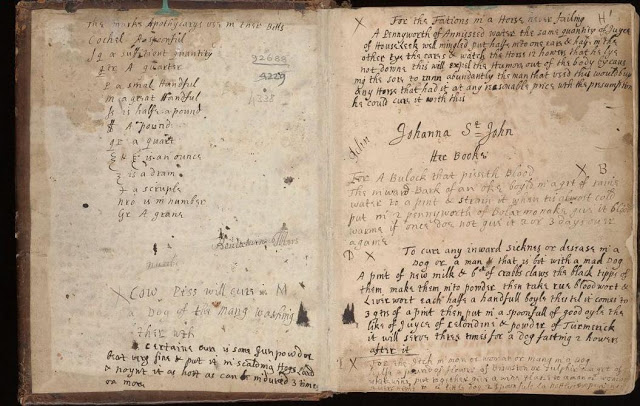 the marks Apothycarys use in ther Bills
Cochel A spoonful
a sufficient quantity
qtr A quarter
p a smal Handful
m a great Handful
is halfe a pound
A pound
qr a quart
is an ounce
is a dram
a scruple
nro is in number
Gr A grane
92688
4338
X Cow Piss will cure in M
a Dog of the Mang washing
ther with
a certaine cure is some Gunpowder
beat very fine & put it in scalding Hogs Lard
& noynt it as hott as can be indured 3 times
or more
X For the Fations in a Horse never failing H
A Pennyworth of Anniseed water the same quantity of Juyce
of Houseleek well mingled put halfe into one eare & halfe in the
other tye the eares & watch the Horse 4 howers that he lye
not downe this will expel the Humor out of the body & cause
the sore to runn abundantly the man that used this would buy
any Horse that had it at any reasonable price with the presumption
he could cure it with this
Johanna St John
Her Booke
For A Bulock that pisseth Blood X B
The inward Bark of an oke boyle in a qrt of
water to a pint & strain it when tis almost cold
put in 2 pennyworth of bolarmonake give it blood
warme if once does not give it 2 or 3 days
againe
D X To cure any inward sicknes or desease in a
Dog or a man that is bit with a mad Dog
A pint of new milk & of crabbs claws the black typps of
them make them into powder then take rue bloodwort &
Liverwort each halfe a handfull boyle thes tel it comes to
3 qtrs of a pint then put in a spoonfull of good oyle the
like of Juyce of celondine & powder of Turmerick
it will serve three times for a dog fasting 2 howers
after it
X For the Itch in man or woman or mang in a Dog